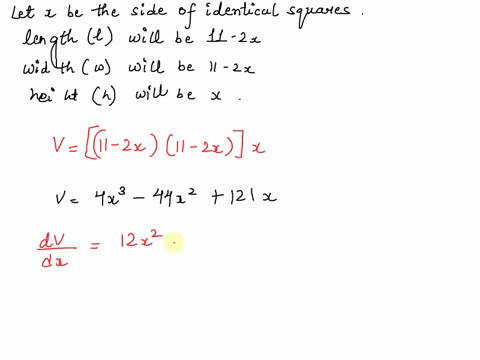 Let x be the side of identical squares.
length (l) will be 11-2x
width (w) will be 11-2x
heiht (h) will be x.
V= [(11-2x) (11-2x)] x
V= 4x³ - 44x² + 121x
dV/dx = 12x²